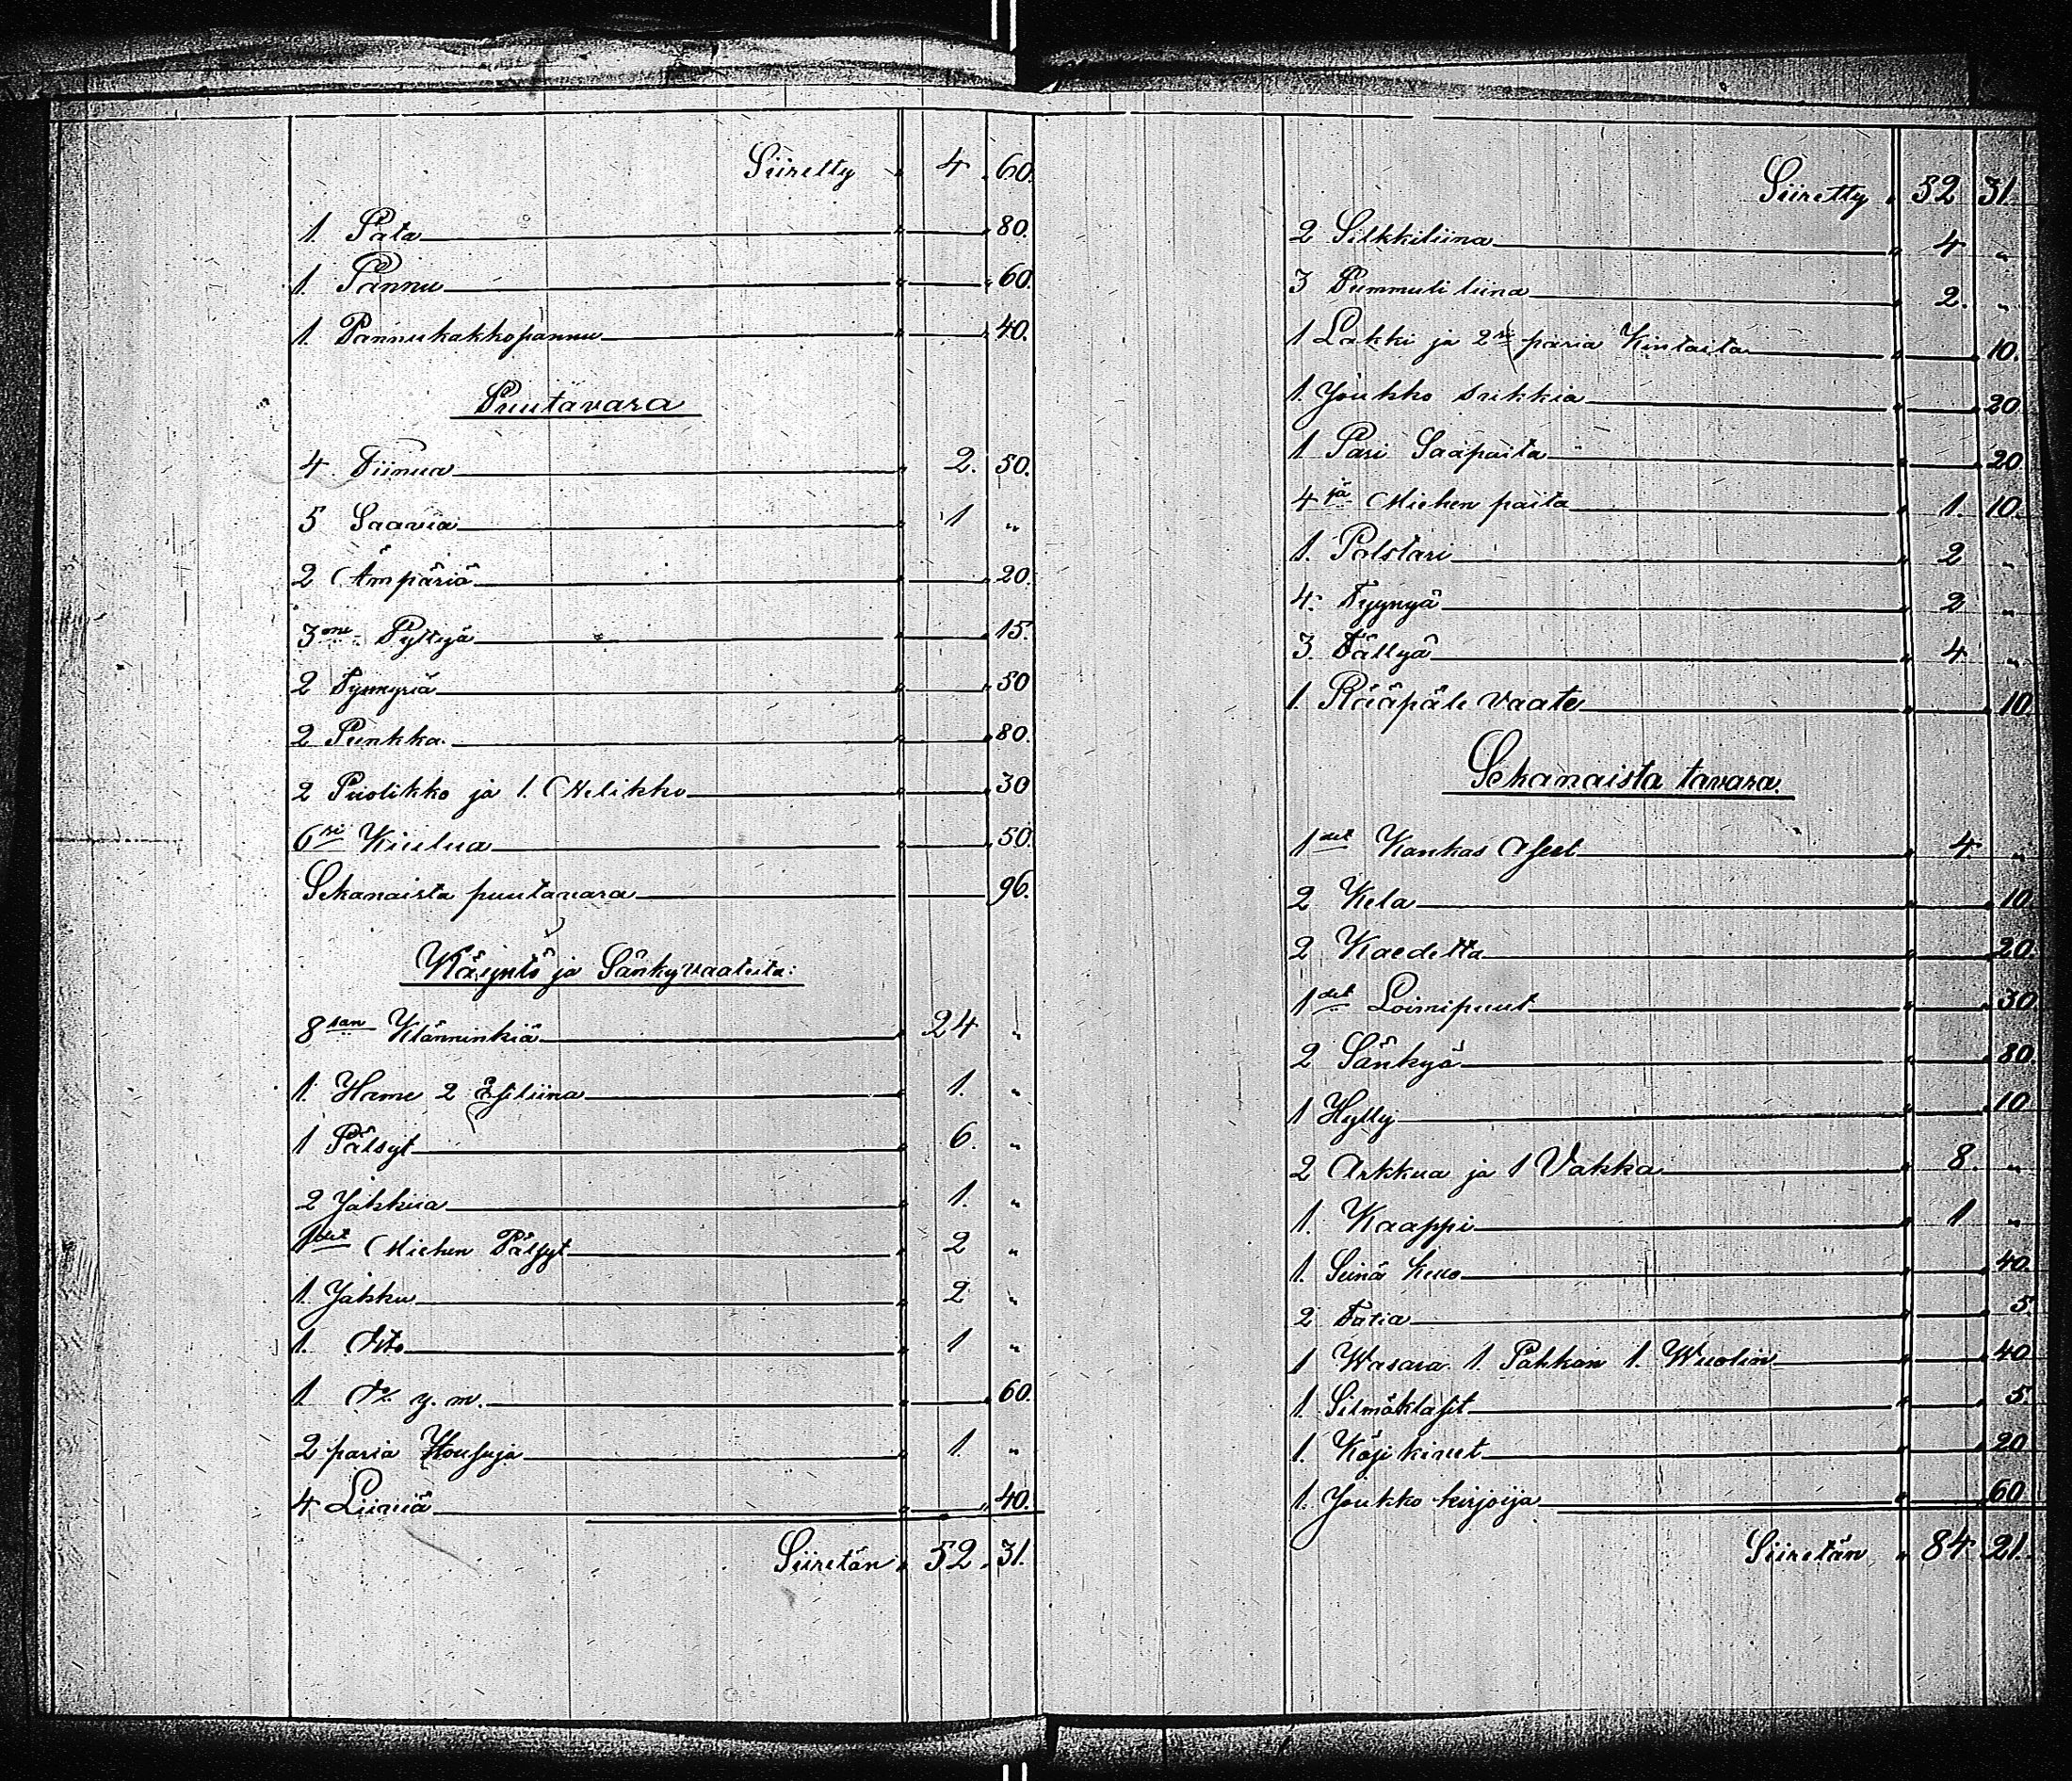 Siiretty " 4 . 60.
1. Pata " " 80.
1. Pannu " " 60.
1 Pannukakkopannu " " 40.
Puutavara
4 Tiinua " 2. 50.
5 Saavia " 1 "
2 Ämpäriä " " 20.
3me Pyttyä " " 15.
2 Tynnyriä " " 50
2 Punkka " " 80.
2 Puolikko ja 1. Nelikko " " 30
6si Kiulua " " 50.
Sekanaista puutavara " 96.
Käyntö ja Sänkyvaateita:
8san Klänninkiä " 24 "
1. Hame 2 Esiliina " 1. "
1 Pälsyt " 6. "
2 Jakkua " 1. "
1det Miehen Pälsyt " 2 "
1. Jakku " 2 "
1. Dito " 1 "
1 Do y. m. " " 60.
2 paria Housuja " 1. "
4 Liiviä " " 40.
Siiretän " 52 . 31.
Siiretty " 52 31.
2 Silkkiliina " 4 "
3 Pummuli liina " 2. "
1 Lakki ja 2si paria Kintaita " " 10.
1. Joukko sukkia " " 20.
1 Pari Saapaita " " 20
4jä Miehen paita " 1. 10.
1. Polstari " 2 "
4. Tyynyä " 2 "
3. Tällyä " 4 "
1. Rääpäle vaate " " 10
Sekanaista tavara.
1det Kankas " 4 "
2 Kela " " 10
2 Kaedetta " " 20.
1det Loimipuut " " 30
2 Sänkyä " " 80.
1 Hylly " " 10
2 Arkkua ja 1 Vakka " 8. "
1. Kaappi " 1 "
1. Seinä Kello " " 40.
2 Fatia " " 5.
1 Wasara 1. Pahkan 1. Wuolin " " 40
1. Silmäklasit " " 5.
1. Käsikivet " " 20
1. Joukko kirjoija " " 60
Siiretän " 84 21.